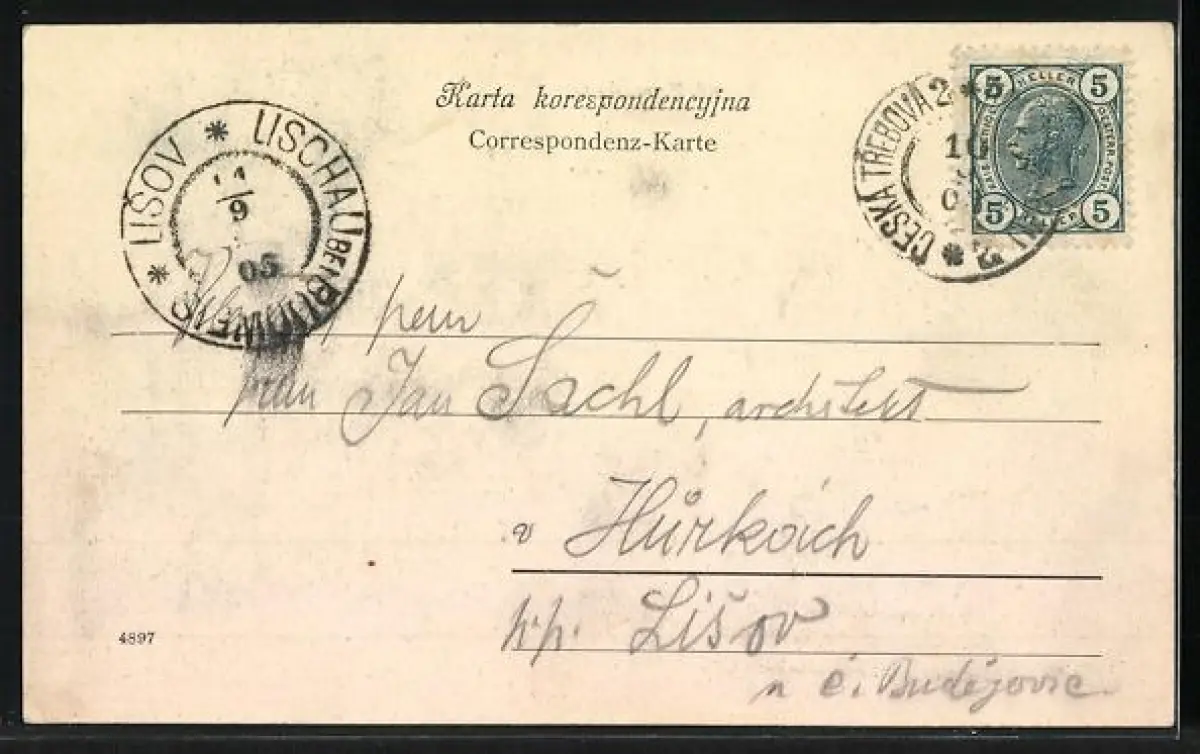 Karta korespondencyjna
Correspondenz-Karte
* LIŠOV * LISCHAU BEI BUDWEIS
14/9
05
ČESKÁ TŘEBOVÁ 2 *
5 HELLER 5
5 HELLER 5
pan Jan Šachl, architekt
v Hůrkách
p. Lišov
u č. Budějovic
4897